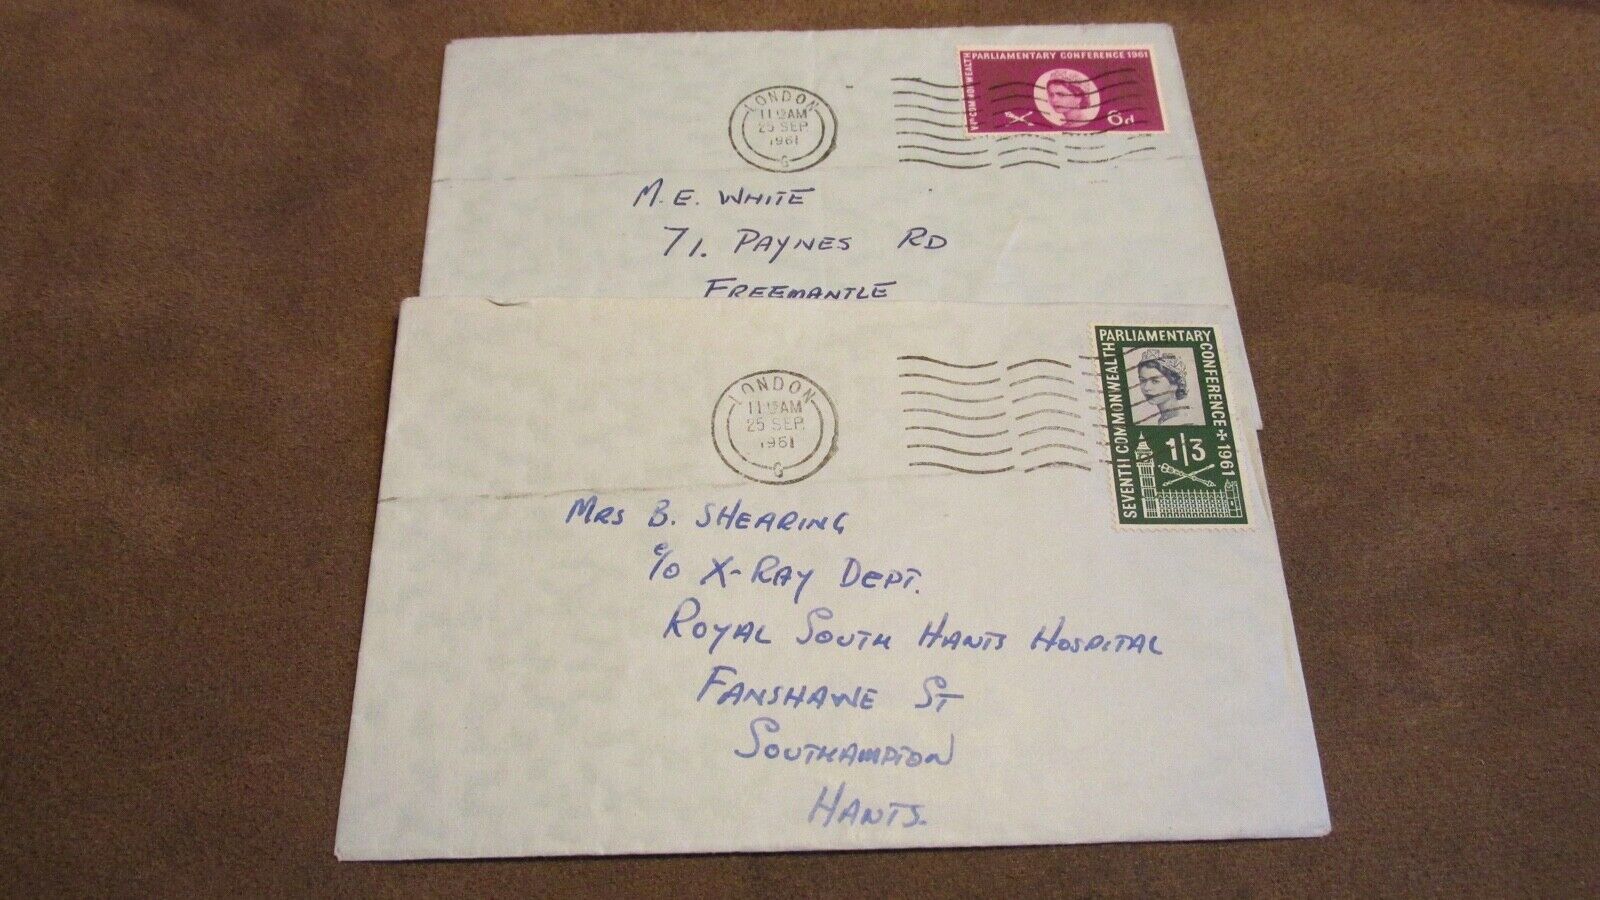 PARLIAMENTARY CONFERENCE 1961
VIITH COMMONWEALTH
6d
LONDON
AM
25 SEP
1961
G
M. E. WHITE
71. PAYNES RD
FREEMANTLE
SEVENTH COMMONWEALTH
PARLIAMENTARY
CONFERENCE + 1961
1/3
LONDON
AM
25 SEP
1961
G
MRS B. SHEARING
c/o X-RAY DEPT.
ROYAL SOUTH HANTS HOSPITAL
FANSHAWE ST
SOUTHAMPTON
HANTS.